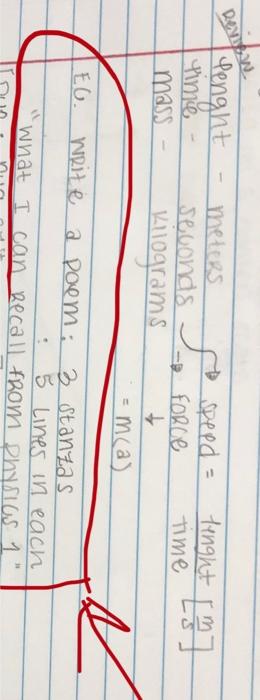 Review
lenght - meters speed = lenght [m/s]
time - seconds → force time
mass - kilograms ↓
= m(a)
EG. write a poem: 3 stanzas
: 5 lines in each
"What I can recall from Physics 1"